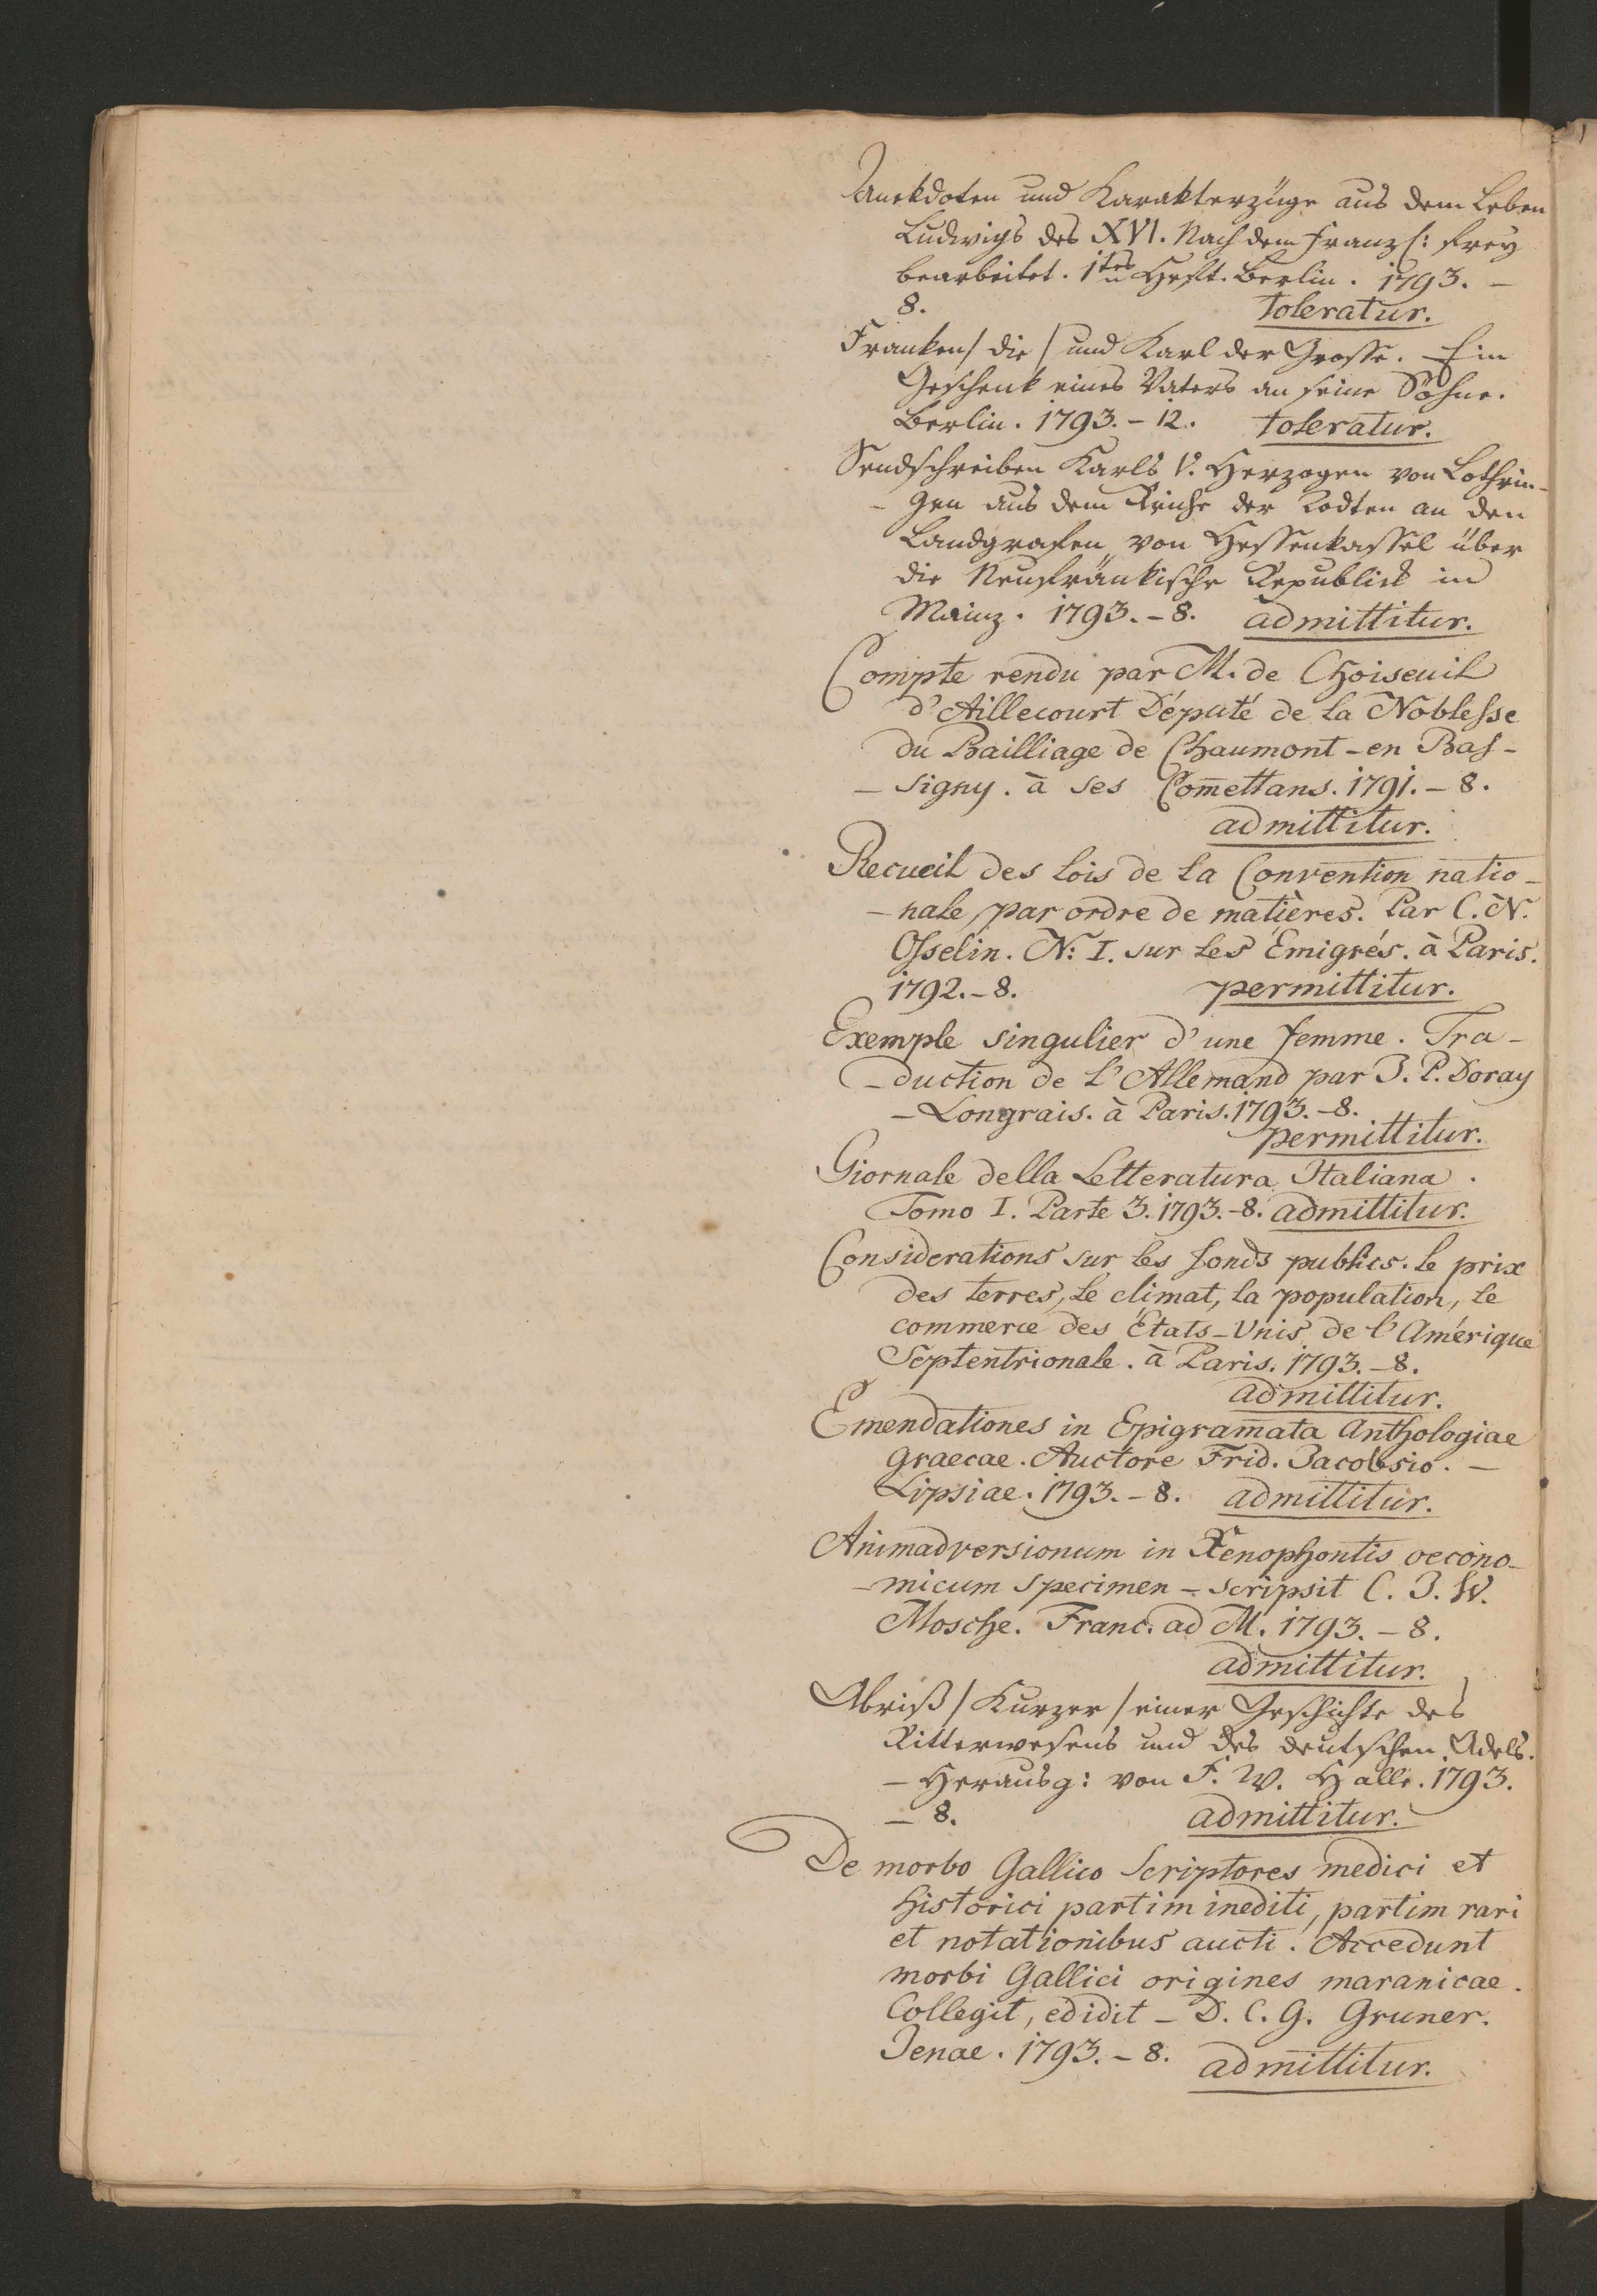 Anekdoten und Karakterzüge aus dem Leben
Ludwigs des XVI. Nach dem Franzs: frey
bearbeitet. 1tes Heft. Berlin. 1793. –
8. toleratur.
Franken / die / und Karl der Grosse. Ein
Geschenk eines Vaters an seine Söhne.
Berlin. 1793. – 12. toleratur.
Sendschreiben Karls V. Herzogen von Lothrin-
- gen aus dem Reiche der Todten an den
Landgrafen von Hessenkassel über
die Neufränkische Republick in
Mainz. 1793. – 8. admittitur.
Compte rendu par M. de Choiseuil
d'Aillecourt Député de la Noblesse
du Bailliage de Chaumont-en Bas-
- signy. à ses Com̄ettans. 1791. – 8.
admittitur.
Recueil des lois de la Convention natio-
- nale, par ordre de matières. Par C. N.
Osselin. N: I. sur les Émigrés. à Paris.
1792. – 8. permittitur.
Exemple singulier d'une femme. Tra-
- duction de l'Allemand par J. P. Doray
- Longrais. à Paris. 1793. – 8.
permittitur.
Giornale della Letteratura Italiana.
Tomo I. Parte 3. 1793. – 8. admittitur.
Considerations sur les fonds publics. le prix
des terres, le climat, la population, le
commerce des États-Unis de l'Amérique
Septentrionale. à Paris. 1793. – 8.
admittitur.
Emendationes in Epigram̄ata Anthologiae
Graecae. Auctore Frid. Jacobsio. –
Lipsiae. 1793. – 8. admittitur.
Animadversionum in Xenophontis oecono-
- micum specimen – scripsit C. J. W.
Mosche. Franc. ad M. 1793. – 8.
admittitur.
Abriß / Kurzer / einer Geschichte des
Ritterwesens und des deutschen Adels.
– Herausg: von F. W. Halle. 1793.
– 8. admittitur.
De morbo Gallico Scriptores medici et
historici partim inediti, partim rari
et notationibus aucti. Accedunt
morbi Gallici origines maranicae.
Collegit, edidit – D. C. G. Gruner.
Jenae. 1793. – 8. admittitur.